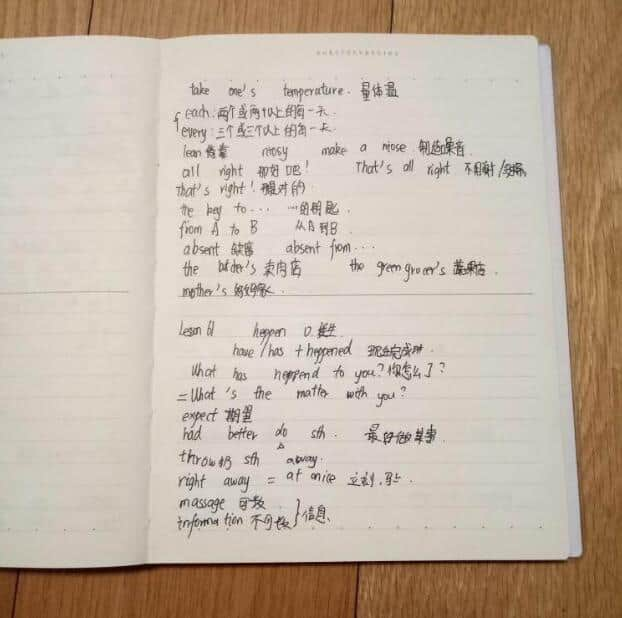 take one's temperature. 量体温
each: 两个或两个以上的每一天.
every: 三个或三个以上的每一天.
lean 倚靠 nosy make a niose 制造噪音.
all right 好吧! That's all right 不用谢/
That's right! 很对的.
the key to... ...的钥匙.
from A to B 从A到B
absent 缺席 absent from...
the 卖肉店 the green grocer's 蔬果店
mother's 妈妈家.
Lesson 61 heppen v. 发生
have/has + heppened 现在完成时.
What has heppend to you? 你怎么了?
= What's the matter with you?
expect 期望
had better do sth. 最好做某事
throw扔 sth away.
right away = at once 立刻.马上
massage 可数
information 不可数 } 信息.